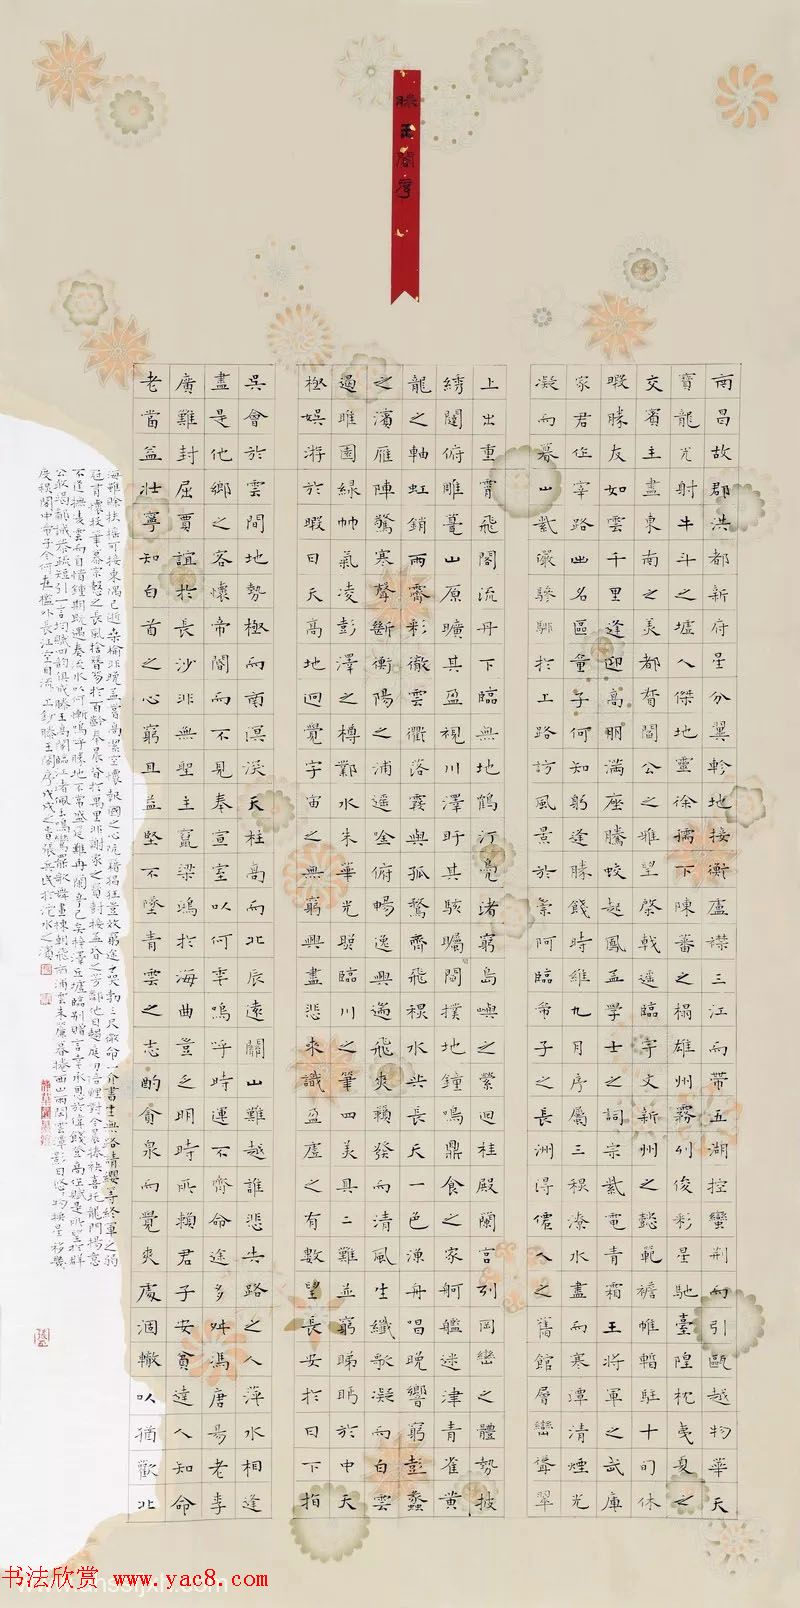 滕王閣序
南昌故郡洪都新府星分翼軫地接衡廬襟三江而帶五湖控蠻荊而引甌越物華天
寶龍光射牛斗之墟人傑地靈徐孺下陳蕃之榻雄州霧列俊彩星馳臺隍枕夷夏之
交賓主盡東南之美都督閻公之雅望棨戟遙臨宇文新州之懿範襜帷暫駐十旬休
暇勝友如雲千里逢迎高朋滿座騰蛟起鳳孟學士之詞宗紫電青霜王將軍之武庫
家君作宰路出名區童子何知躬逢勝餞時維九月序屬三秋潦水盡而寒潭清煙光
凝而暮山紫儼驂騑於上路訪風景於崇阿臨帝子之長洲得僊人之舊館層巒聳翠
上出重霄飛閣流丹下臨無地鶴汀鳧渚窮島嶼之縈迴桂殿蘭宮列岡巒之體勢披
繡闥俯雕甍山原曠其盈視川澤盱其駭矚閭撲地鐘鳴鼎食之家舸艦迷津青雀黃
龍之軸虹銷雨霽彩徹雲衢落霞與孤鶩齊飛秋水共長天一色漁舟唱晚響窮彭蠡
之濱雁陣驚寒聲斷衡陽之浦遙吟俯暢逸興遄飛爽籟發而清風生纖歌凝而白雲
遏睢園綠竹氣凌彭澤之樽鄴水朱華光照臨川之筆四美具二難並窮睇眄於中天
極娛游於暇日天高地迥覺宇宙之無窮興盡悲來識盈虛之有數望長安於日下指
吳會於雲間地勢極而南溟深天柱高而北辰遠關山難越誰悲失路之人萍水相逢
盡是他鄉之客懷帝閽而不見奉宣室以何年嗚呼時運不齊命途多舛馮唐易老李
廣難封屈賈誼於長沙非無聖主竄梁鴻於海曲豈乏明時所賴君子安貧達人知命
老當益壯寧知白首之心窮且益堅不墜青雲之志酌貪泉而覺爽處涸轍以猶歡北
海雖賒扶搖可接東隅已逝桑榆非晚孟嘗高潔空懷報國之心阮籍猖狂豈效窮途之哭勃三尺微命一介書生無路請纓等終軍之弱
冠有懷投筆慕宗愨之長風捨簪笏於百齡奉晨昏於萬里非謝家之寶樹接孟氏之芳鄰他日趨庭叨陪鯉對今晨捧袂喜托龍門楊意
不逢撫凌雲而自惜鍾期既遇奏流水以何慚嗚呼勝地不常盛筵難再蘭亭已矣梓澤丘墟臨別贈言幸承恩於偉餞登高作賦是所望於群
公敢竭鄙誠恭疏短引一言均賦四韻俱成滕王高閣臨江渚佩玉鳴鸞罷歌舞畫棟朝飛南浦雲朱簾暮捲西山雨閑雲潭影日悠悠物換星移幾
度秋閣中帝子今何在檻外長江空自流 上鈔滕王閣序戊戌之春張兵於沱水之濱
书法欣赏 www.yac8.com